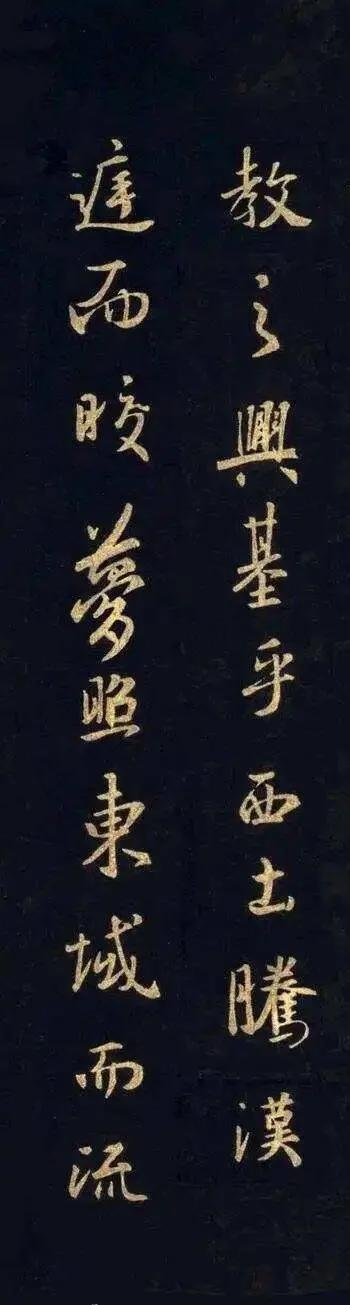 教之興基乎西土騰漢
庭而皎夢照東域而流